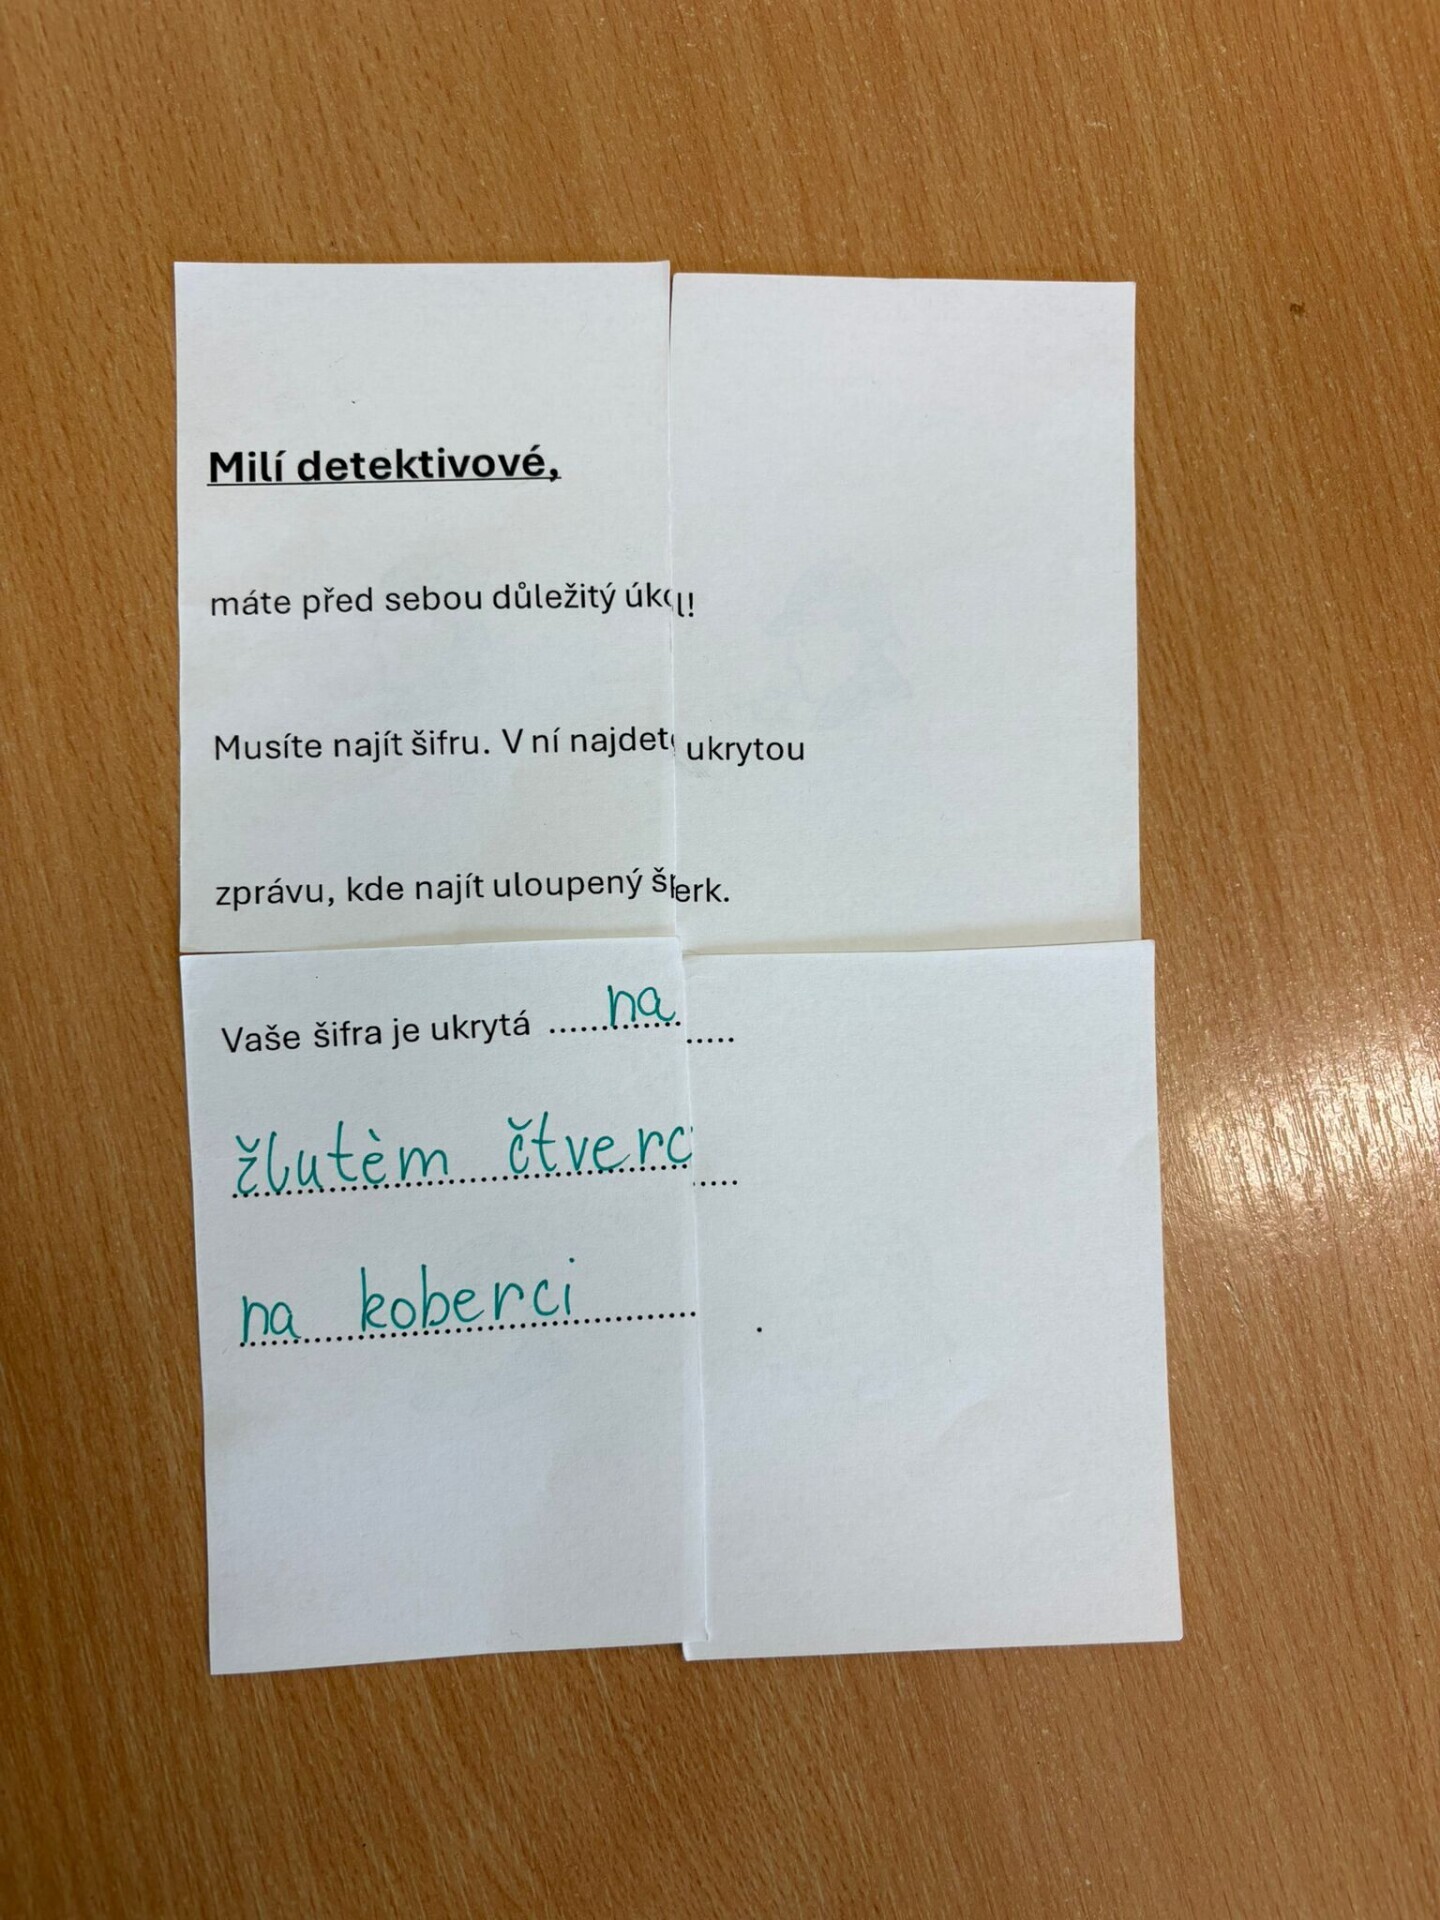 Milí detektivové,
máte před sebou důležitý úkol!
Musíte najít šifru. V ní najdete ukrytou
zprávu, kde najít uloupený šperk.
Vaše šifra je ukrytá ......na......
žlutèm čtverci.....
na koberci............ .